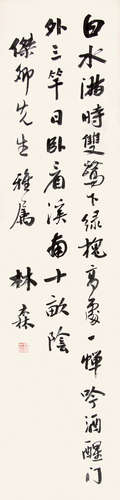 白水滿時雙鷺下綠槐高處一蟬吟酒醒门
外三竿日臥看溪南十畝陰
傑卿先生雅屬
林森